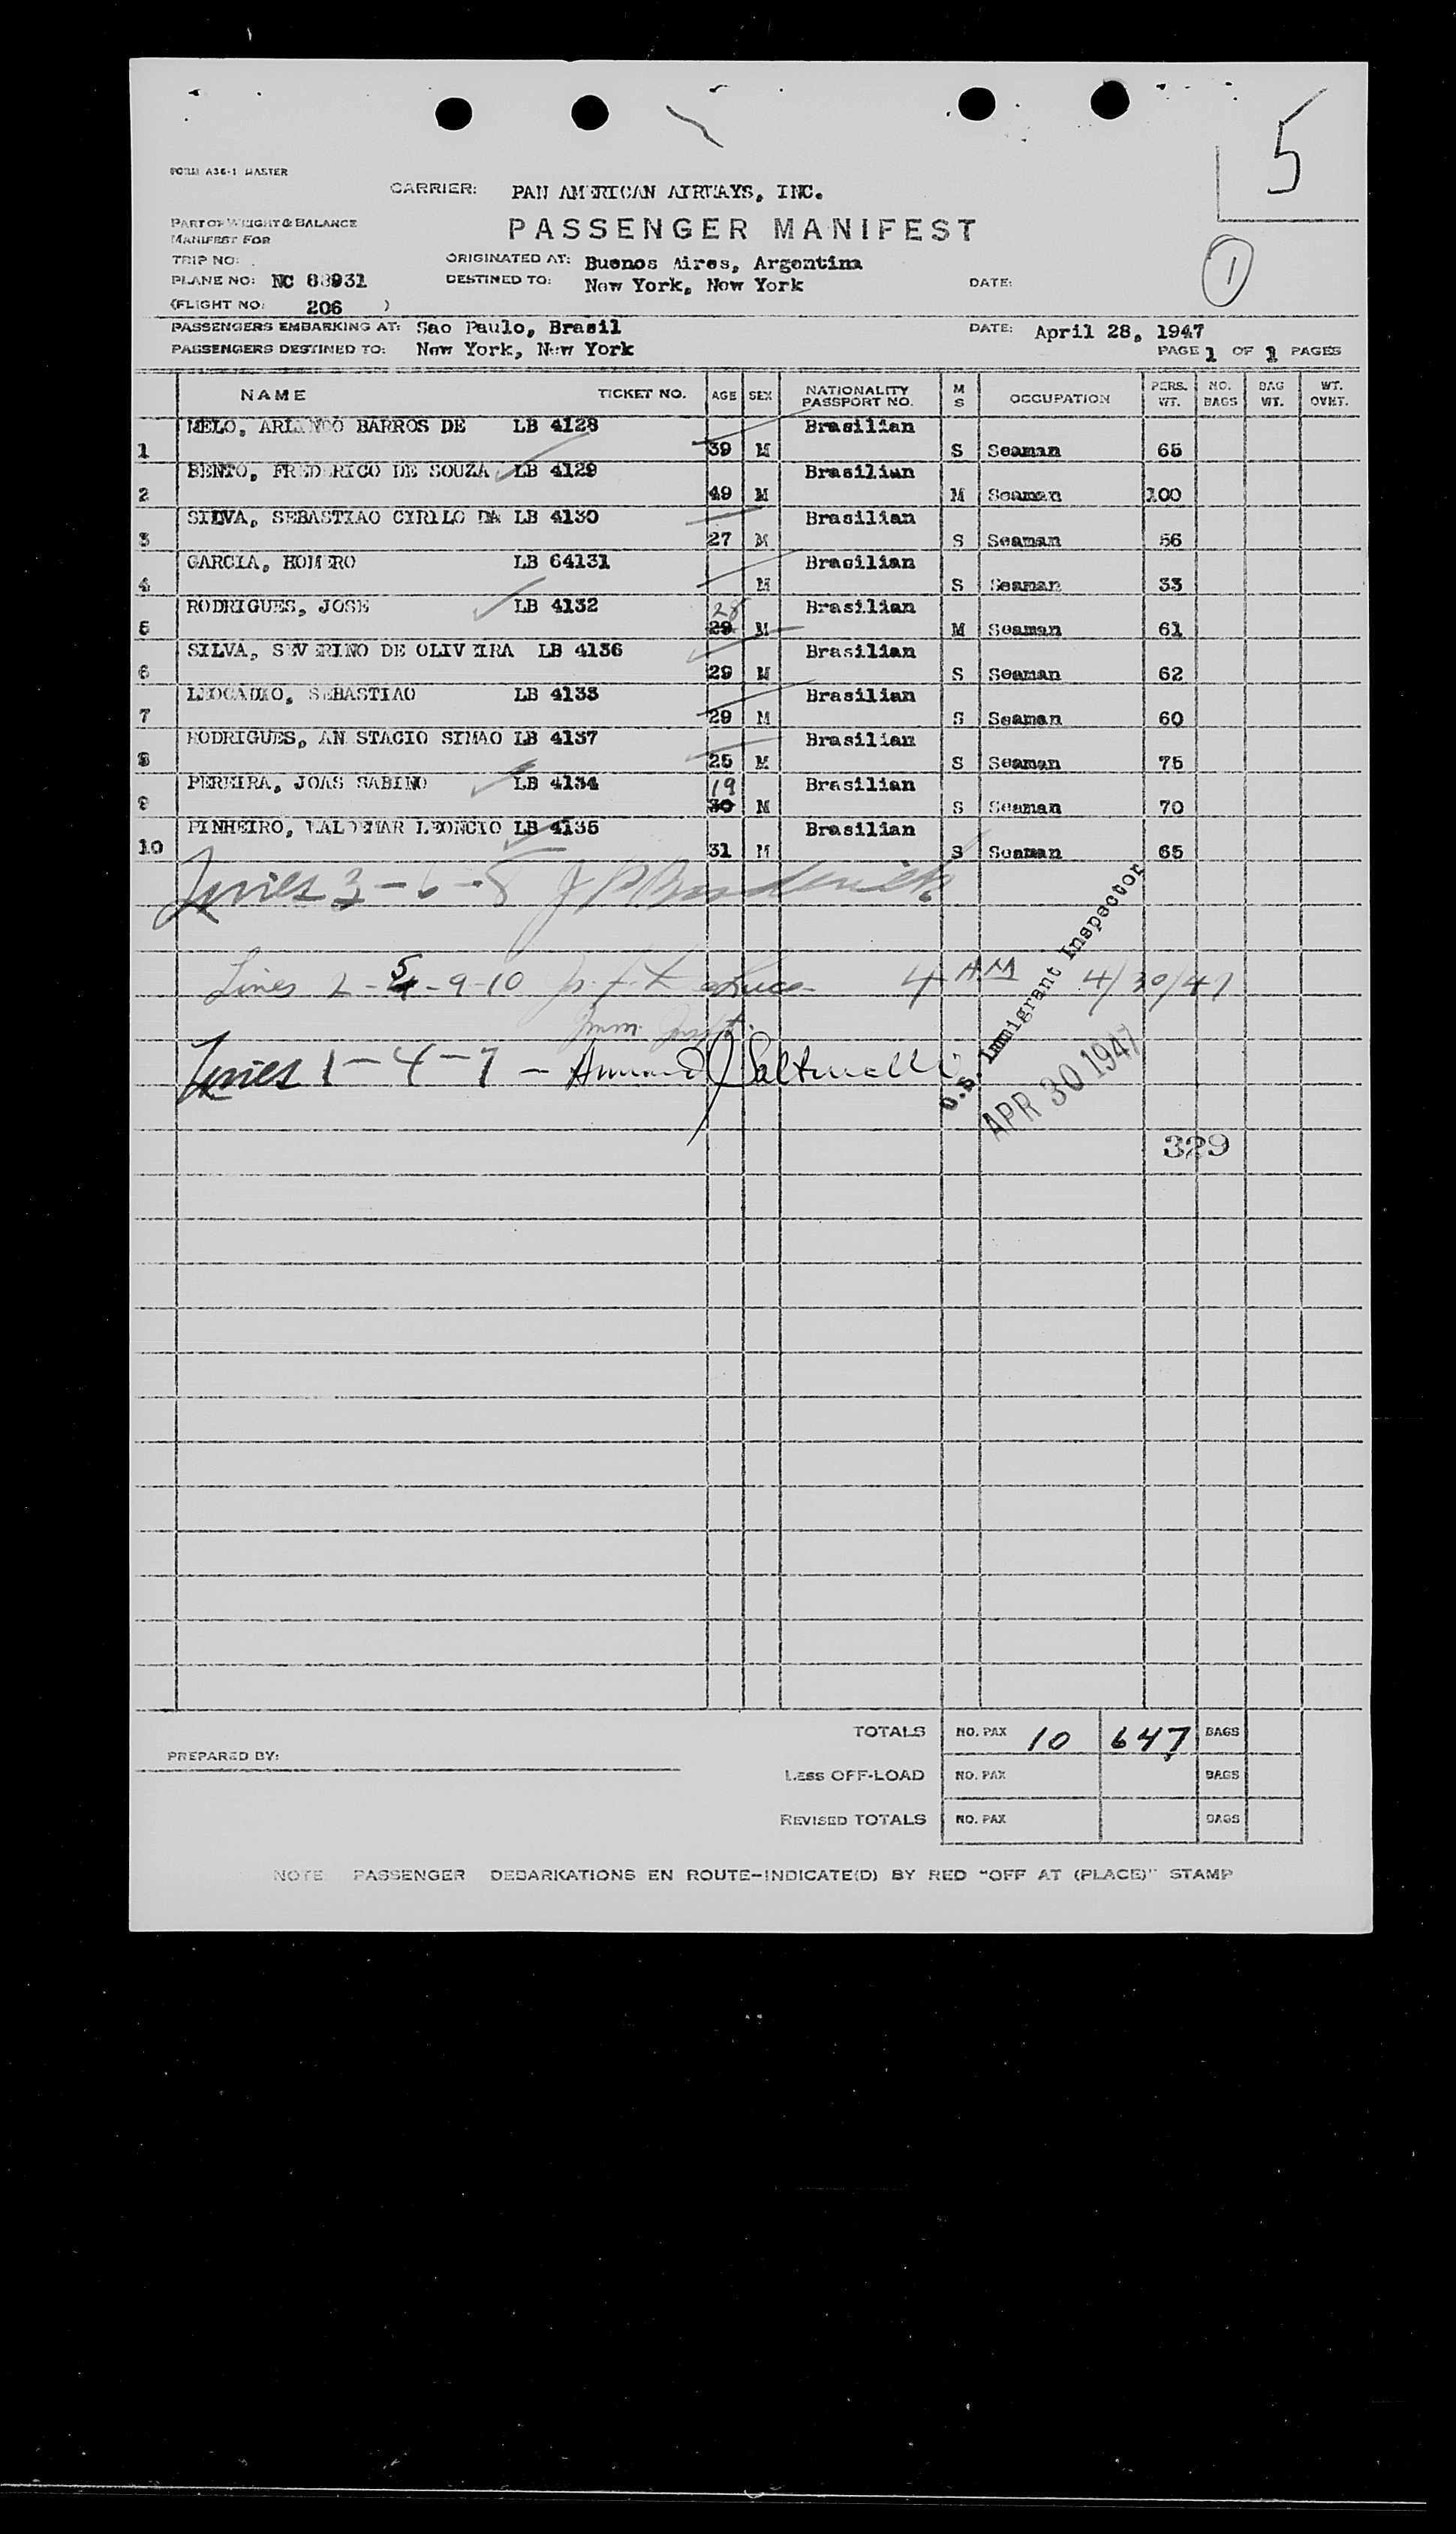 5
FORM A36-1 MASTER
CARRIER: PAN AMERICAN AIRWAYS, INC.
PART OF WEIGHT & BALANCE
MANIFEST FOR
PASSENGER MANIFEST
1
TRIP NO:
ORIGINATED AT: Buenos Aires, Argentina
PLANE NO: NC 88931
DESTINED TO: New York, New York
DATE:
(FLIGHT NO: 206 )
PASSENGERS EMBARKING AT: Sao Paulo, Brasil DATE: April 28, 1947
PASSENGERS DESTINED TO: New York, New York PAGE 1 OF 1 PAGES
NAME TICKET NO. AGE SEX NATIONALITY PASSPORT NO. M S OCCUPATION PERS. WT. NO. BAGS BAG WT. WT. OVHT.
1 MELO, ARLINDO BARROS DE LB 4128 39 M Brasilian S Seaman 65
2 BENTO, FREDERICO DE SOUZA LB 4129 49 M Brasilian M Seaman 100
3 SILVA, SEBASTIAO CIRILO DA LB 4130 27 M Brasilian S Seaman 56
4 GARCIA, HOMERO LB 64131 M Brasilian S Seaman 33
5 RODRIGUES, JOSE LB 4132 28 29 M Brasilian M Seaman 61
6 SILVA, SEVERINO DE OLIVEIRA LB 4136 29 M Brasilian S Seaman 62
7 LEOCADIO, SEBASTIAO LB 4133 29 M Brasilian S Seaman 60
8 RODRIGUES, AN STACIO SIMAO LB 4137 25 M Brasilian S Seaman 75
9 PEREIRA, JOAS SABINO LB 4134 19 30 M Brasilian S Seaman 70
10 PINHEIRO, WALDEMAR LEONCIO LB 4135 31 M Brasilian S Seaman 65
Lines 3-6-8 J P Broderick
Lines 2-5-9-10 4 AM 4/30/47
Imm. Inspt.
Lines 1-4-7 -
U.S. Immigrant Inspector
APR 30 1947
329
TOTALS NO. PAX 10 647 BAGS
PREPARED BY:
LESS OFF-LOAD NO. PAX BAGS
REVISED TOTALS NO. PAX BAGS
NOTE PASSENGER DEBARKATIONS EN ROUTE-INDICATE(D) BY RED "OFF AT (PLACE)" STAMP